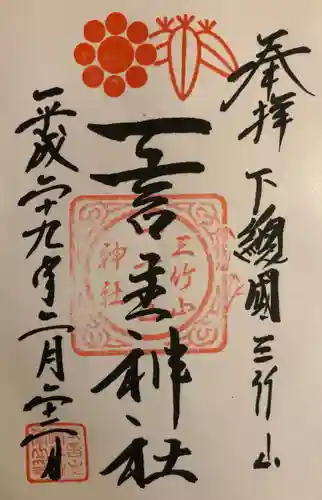 奉拝 下總國三竹山
一言主神社
三竹山
神社
平成二十九年二月二十二日